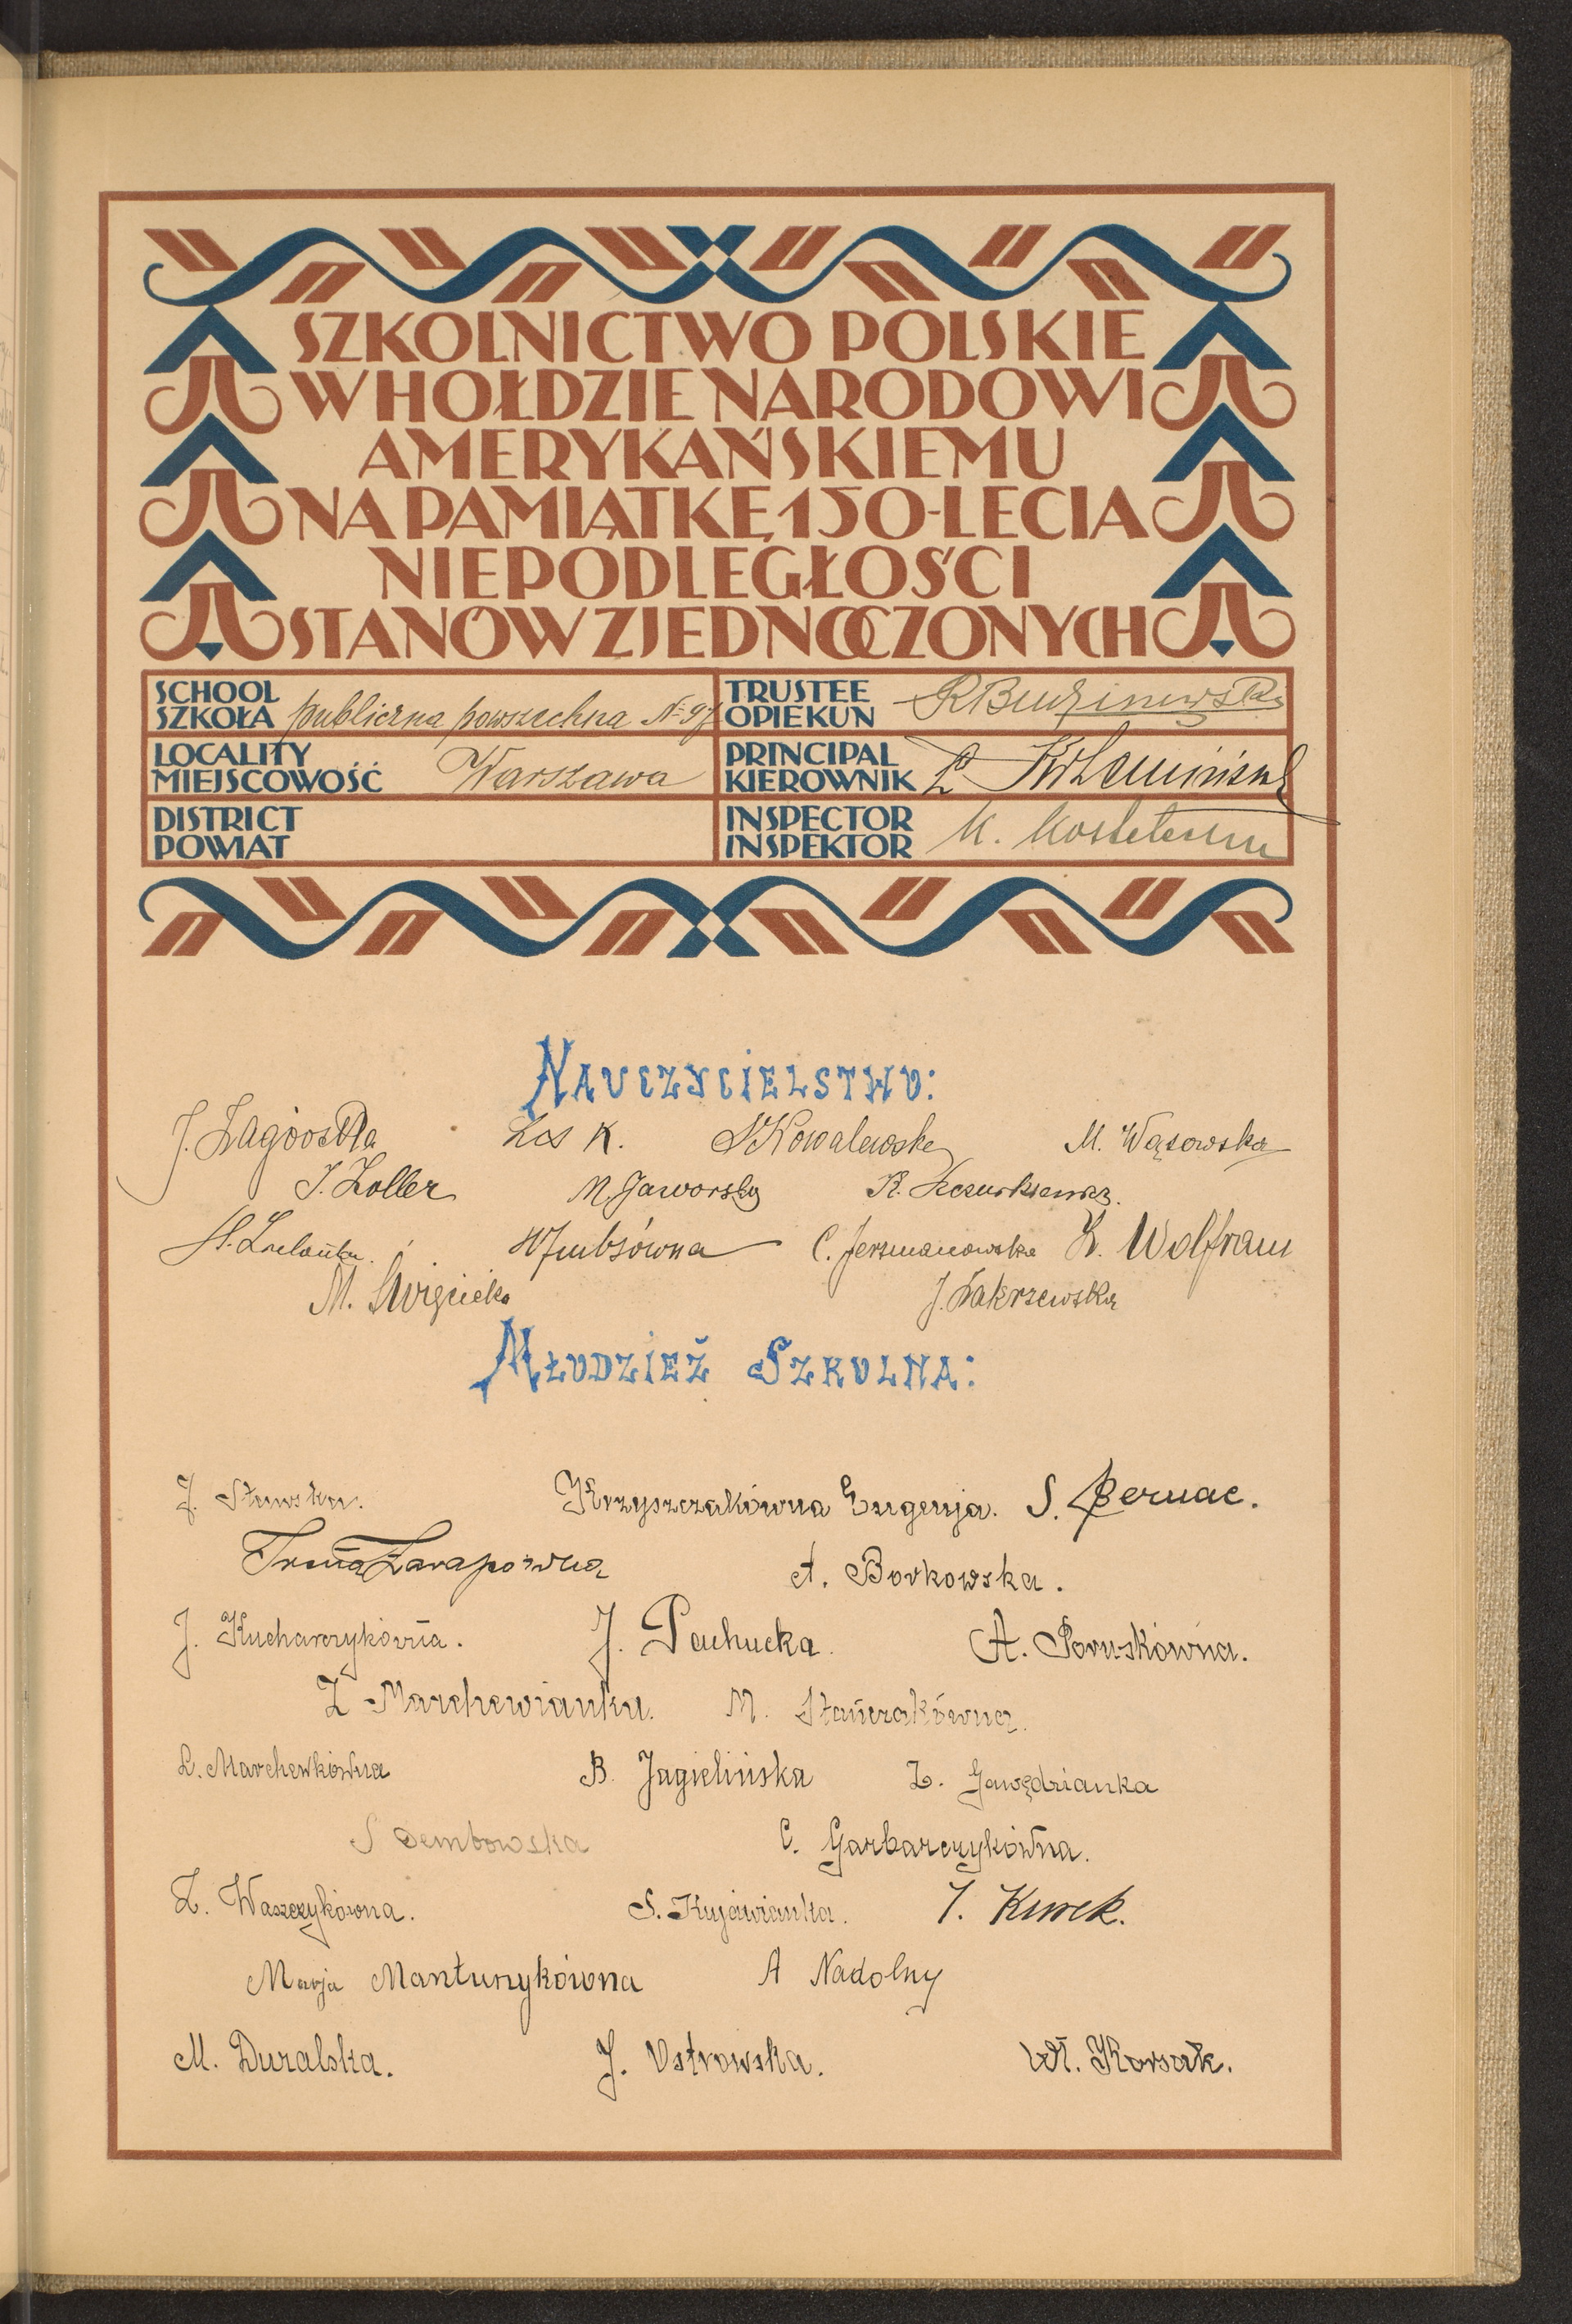 SZKOLNICTWO POLSKIE
W HOŁDZIE NARODOWI
AMERYKAŃSKIEMU
NA PAMIĄTKĘ 150-LECIA
NIEPODLEGŁOŚCI
STANÓW ZJEDNOCZONYCH
SCHOOL
SZKOŁA publiczna powszechna № 97
TRUSTEE
OPIEKUN
LOCALITY
MIEJSCOWOŚĆ Warszawa
PRINCIPAL
KIEROWNIK
DISTRICT
POWIAT
INSPECTOR
INSPEKTOR M.
NAUCZYCIELSTWO:
J. Zagórska Los K. Kowalewska M. Wąsowska
J. Zoller M. Jaworska K.
H. C. Jermanowska Z. Wolfram
M. Święcicka J. Zakrzewska
MŁODZIEŻ SZKOLNA:
Krzyszczakówna Eugenja. S. Bernac.
A. Borkowska.
J. Kucharczykówna. J. Pachucka. A. Poruskówna.
Z Marchewianka. M. Stańczakówna.
L. Marchewkówna B. Jagielińska Z. Gawędzianka
S Dembowska C. Garbarczykówna.
Z. Waszczykówna. S. Kujawianka. J. Kurek.
Marja Mantunykówna A Nadolny
M. Duralska. J. Ostrowska. Wł. Korsak.